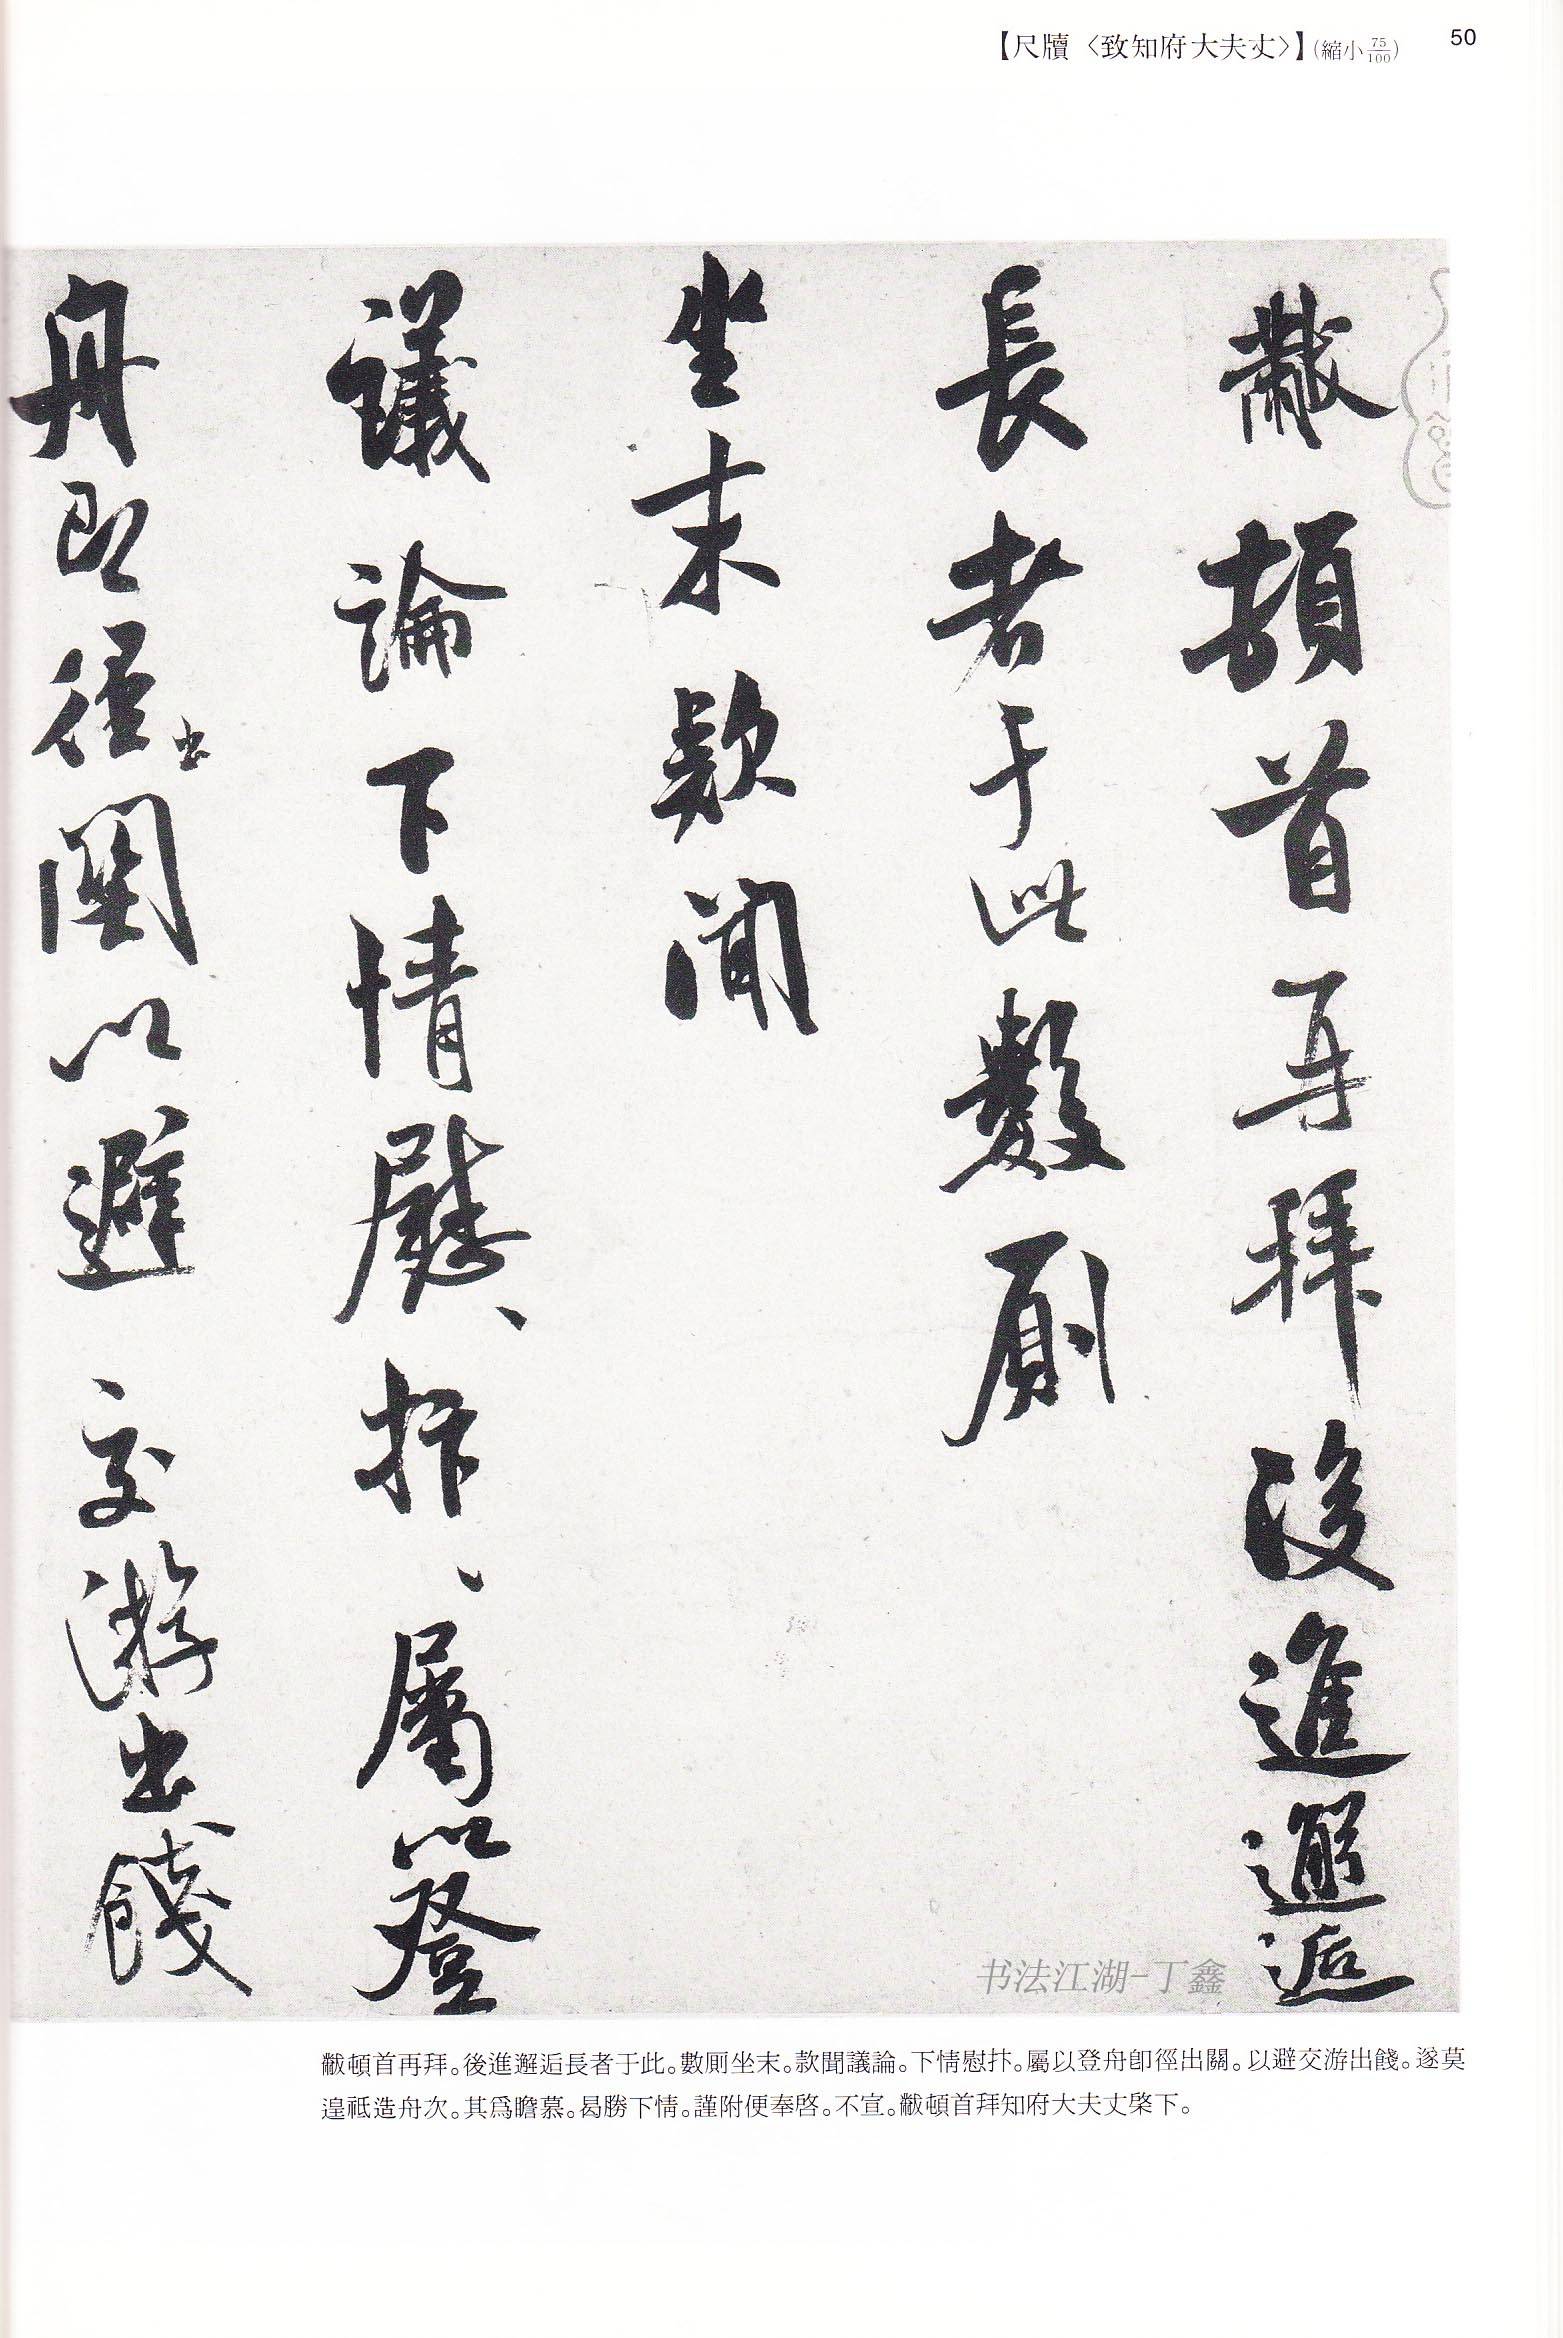 【尺牘〈致知府大夫丈〉】(縮小75/100)
50
黻頓首再拜後進邂逅
長者于此數厠
坐末款聞
議論下情慰、抃、屬以登
舟即徑出關以避交游出餞
书法江湖-丁鑫
黻頓首再拜。後進邂逅長者于此。數厠坐末。款聞議論。下情慰抃。屬以登舟卽徑出關。以避交游出餞。遂莫
遑祗造舟次。其爲瞻慕。曷勝下情。謹附便奉啓。不宣。黻頓首拜知府大夫丈棨下。